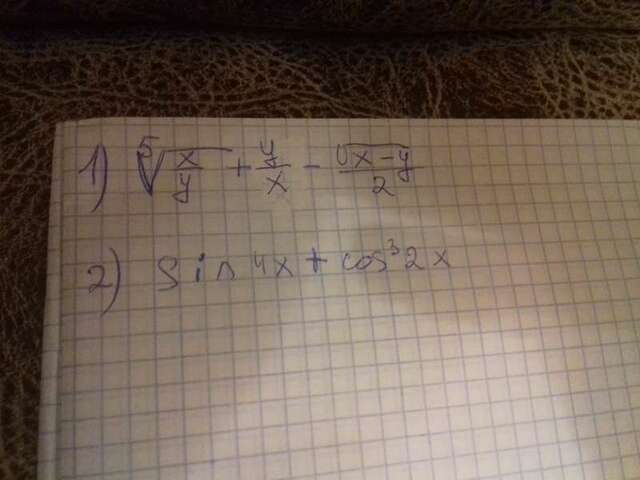 1) ⁵√(x/y) + y/x - √(x-y)/2
2) sin 4x + cos³ 2x